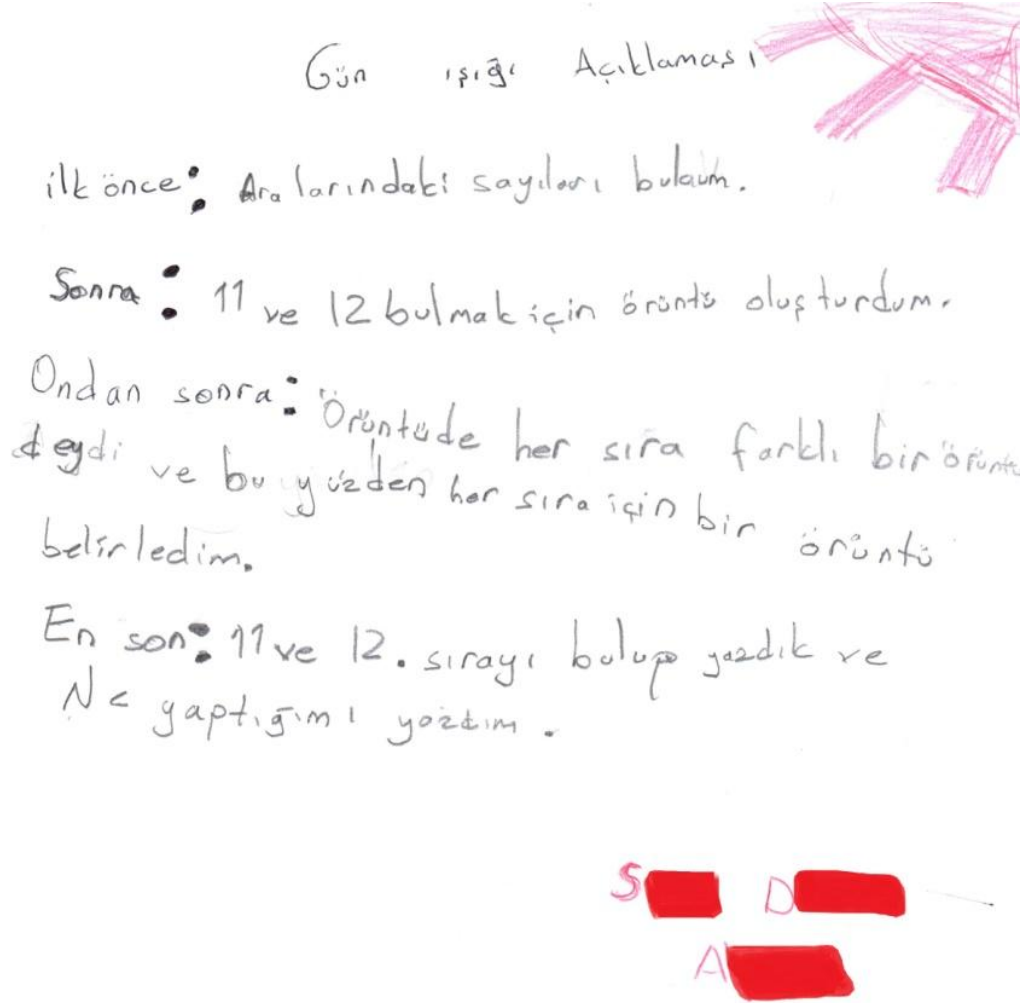 Gün ışığı Açıklaması
ilk önce: Aralarındaki sayıları buldum.
Sonra: 11 ve 12 bulmak için örüntü oluşturdum.
Ondan sonra: Örüntüde her sıra farklı bir örüntü
deydi ve bu yüzden her sıra için bir örüntü
belirledim.
En son: 11 ve 12. sırayı bulup yazdık ve
Ne yaptığımı yazdım.
S D
A